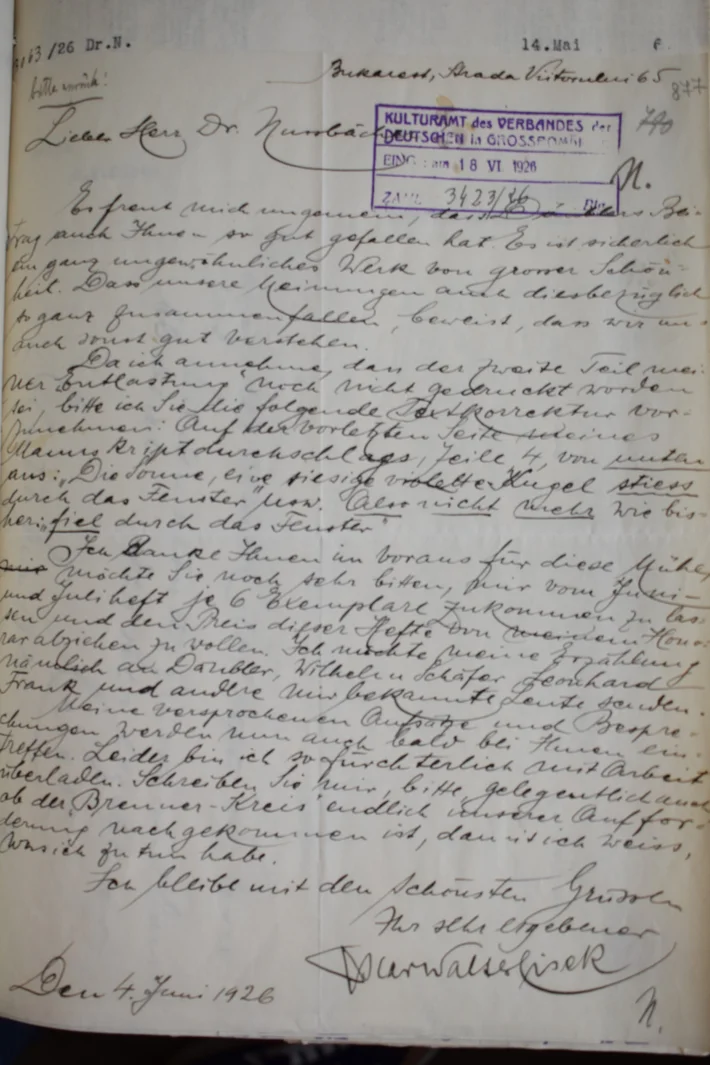 3163/26 Dr.N.
14.Mai 6.
bitte zurück!
Bukarest, Strada Viitorului 65
877
Lieber Herr Dr. Nussbächer
790
KULTURAMT des VERBANDES der
DEUTSCHEN in GROSSRUMÄ
EING: am 18 VI. 1926
ZAHL 3423/26
N.
Es freut mich ungemein, dass Bei-
trag auch Ihnen so gut gefallen hat. Es ist sicherlich
ein ganz ungewöhnliches Werk von grosser Schön-
heit. Dass unsere Meinungen auch diesbezüglich
so ganz zusammenfallen, beweist, dass wir uns
auch sonst gut verstehen.
Da ich annehme, dass der zweite Teil mei-
ner „Entlastung" noch nicht gedruckt worden
sei, bitte ich Sie die folgende Textkorrektur vor-
zunehmen: Auf der vorletzten Seite meines
Manuskriptdurchschlags, Zeile 4, von unten
aus: „Die Sonne, eine riesige violette Kugel stiess
durch das Fenster" usw. Also nicht mehr wie bis-
her: „fiel durch das Fenster"
Ich danke Ihnen im Voraus für diese Mühe,
möchte Sie noch sehr bitten, mir vom Juni-
und Juliheft je 6 Exemplare zukommen zu las-
sen und den Preis dieser Hefte von meinem Hono-
rar abziehen zu wollen. Ich möchte meine Erzählung
nämlich an Däubler, Wilhelm Schäfer, Leonhard
Frank und andere mir bekannte Leute senden.
Meine versprochenen Aufsätze und Bespre-
chungen werden nun auch bald bei Ihnen ein-
treffen. Leider bin ich so fürchterlich mit Arbeit
überladen. Schreiben Sie mir, bitte, gelegentlich auch
ob der „Brenner-Kreis" endlich unserer Auffor-
derung nachgekommen ist, damit ich weiss,
was ich zu tun habe.
Ich bleibe mit den schönsten Grüssen
Ihr sehr ergebener
Oscar Walter Cisek
Den 4. Juni 1926
N.